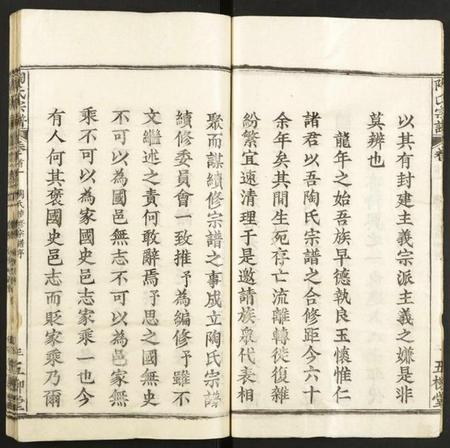 以其有封建主義宗派主義之嫌是非
莫辨也
龍年之始吾族早德執良玉懷惟仁
諸君以吾陶氏宗譜之合修距今六十
余年矣其間生死存亡流離轉徙復雜
紛繁宜速清理于是邀請族衆代表相
聚而謀續修宗譜之事成立陶氏宗譜
續修委員會一致推予為編修予雖不
文繼述之責何敢辭焉予思之國無史
不可以為國邑無志不可以為邑家無
乘不可以為家國史邑志家乘一也今
有人何其褒國史邑志而貶家乘乃爾
陶氏宗譜
五柳堂
陶氏宗譜
五柳堂